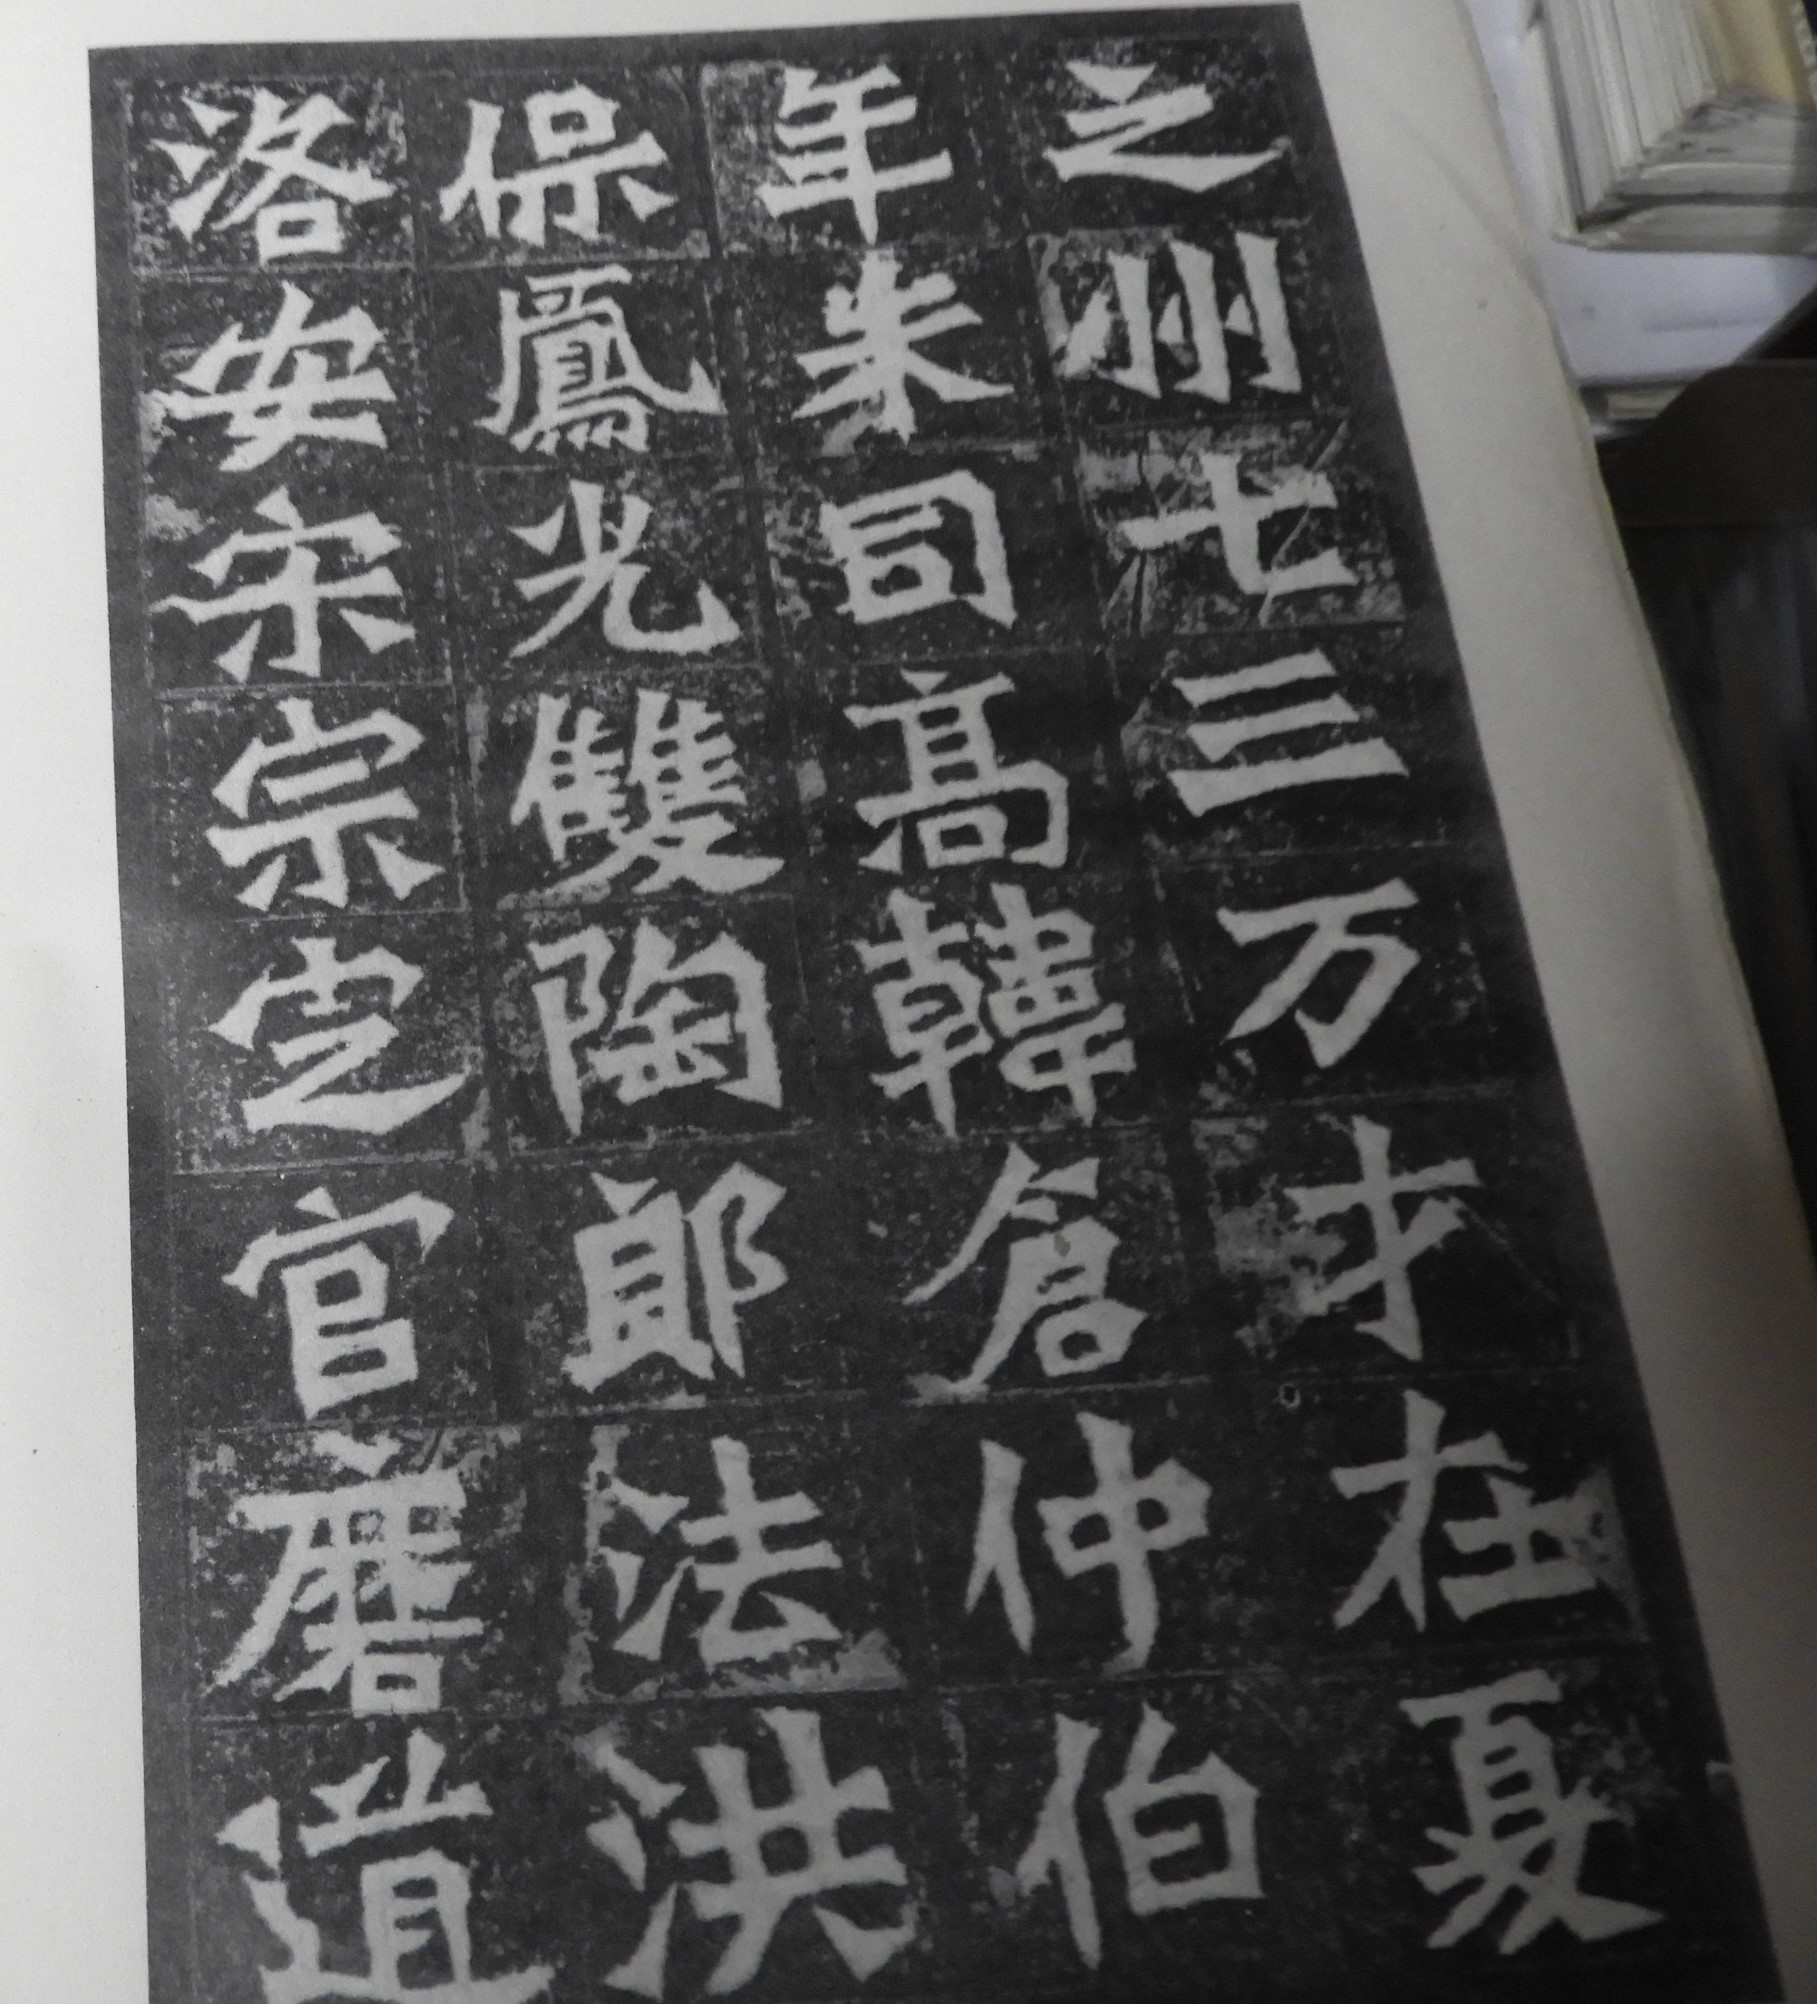 之州七三万才在夏
年朱司高韓倉仲伯
保鳳光雙陶郎法洪
洛安宋宗㝎官磨道